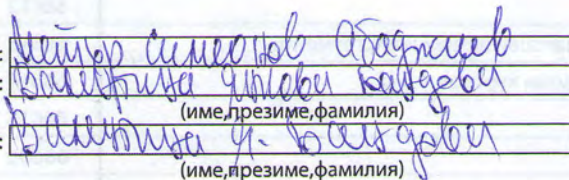 : Петър Симеонов Абаджиев
: Валентина Янова Бандова
(име,презиме,фамилия)
: Валентина Я. Бандова
(име,презиме,фамилия)